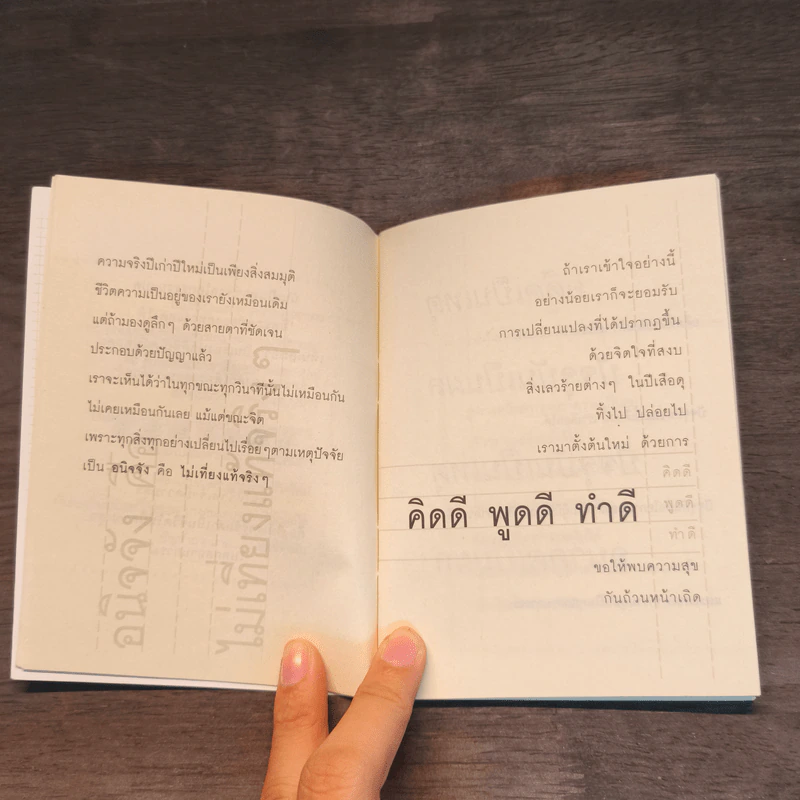 ความจริงปีเก่าปีใหม่เป็นเพียงสิ่งสมมุติ
ชีวิตความเป็นอยู่ของเรายังเหมือนเดิม
แต่ถ้ามองดูลึกๆ ด้วยสายตาที่ชัดเจน
ประกอบด้วยปัญญาแล้ว
เราจะเห็นได้ว่าในทุกขณะทุกวินาทีนั้นไม่เหมือนกัน
ไม่เคยเหมือนกันเลย แม้แต่ขณะจิต
เพราะทุกสิ่งทุกอย่างเปลี่ยนไปเรื่อยๆตามเหตุปัจจัย
เป็น อนิจจัง คือ ไม่เที่ยงแท้จริงๆ
อนิจจัง คือ
ไม่เที่ยงแท้จริงๆ
ถ้าเราเข้าใจอย่างนี้
อย่างน้อยเราก็จะยอมรับ
การเปลี่ยนแปลงที่ได้ปรากฏขึ้น
ด้วยจิตใจที่สงบ
สิ่งเลวร้ายต่างๆ ในปีเสือดุ
ทิ้งไป ปล่อยไป
เรามาตั้งต้นใหม่ ด้วยการ
คิดดี
พูดดี
ทำดี
คิดดี พูดดี ทำดี
ขอให้พบความสุข
กันถ้วนหน้าเถิด